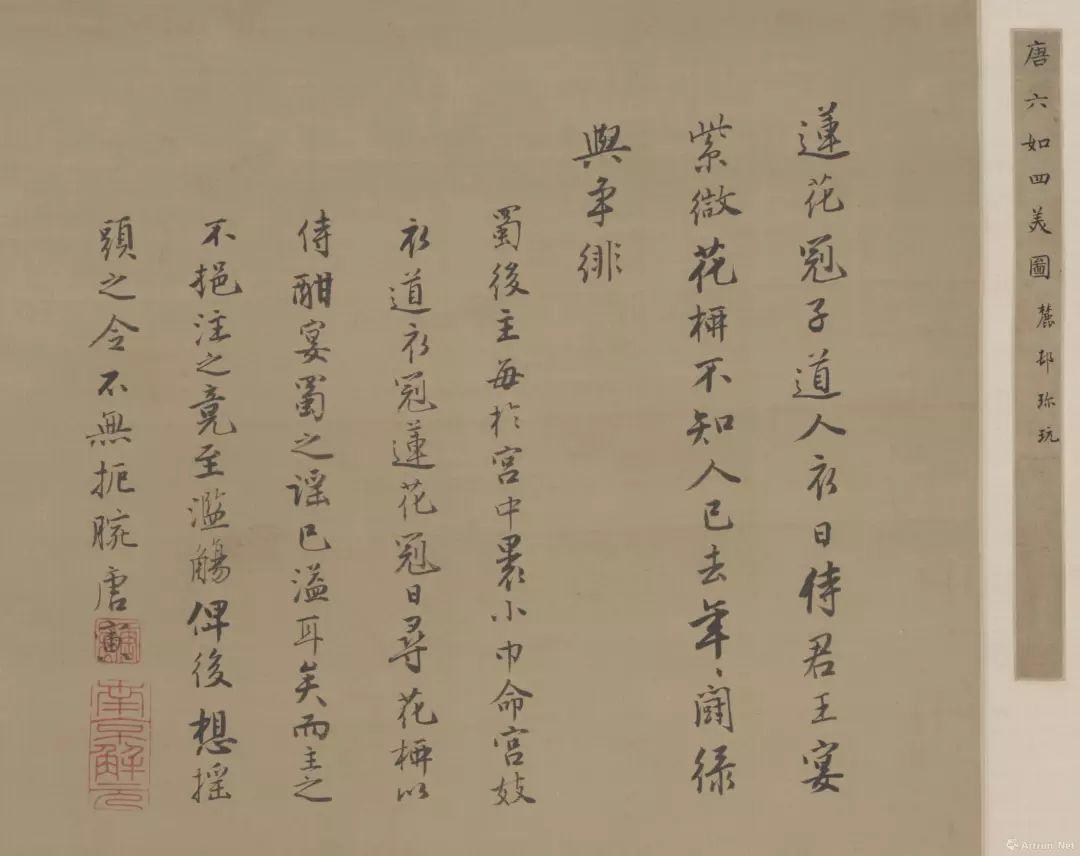 唐六如四美圖 麓邨珎玩
蓮花冠子道人衣日侍君王宴
紫微花桺不知人已去年〻鬬緑
與爭緋
蜀後主每於宮中裹小巾命宮妓
衣道衣冠蓮花冠日尋花桺以
侍酣宴蜀之謡已溢耳矣而主之
不挹注之竟至濫觴俾後想揺
頭之令不無扼腕唐寅
南京解元
Artron.Net